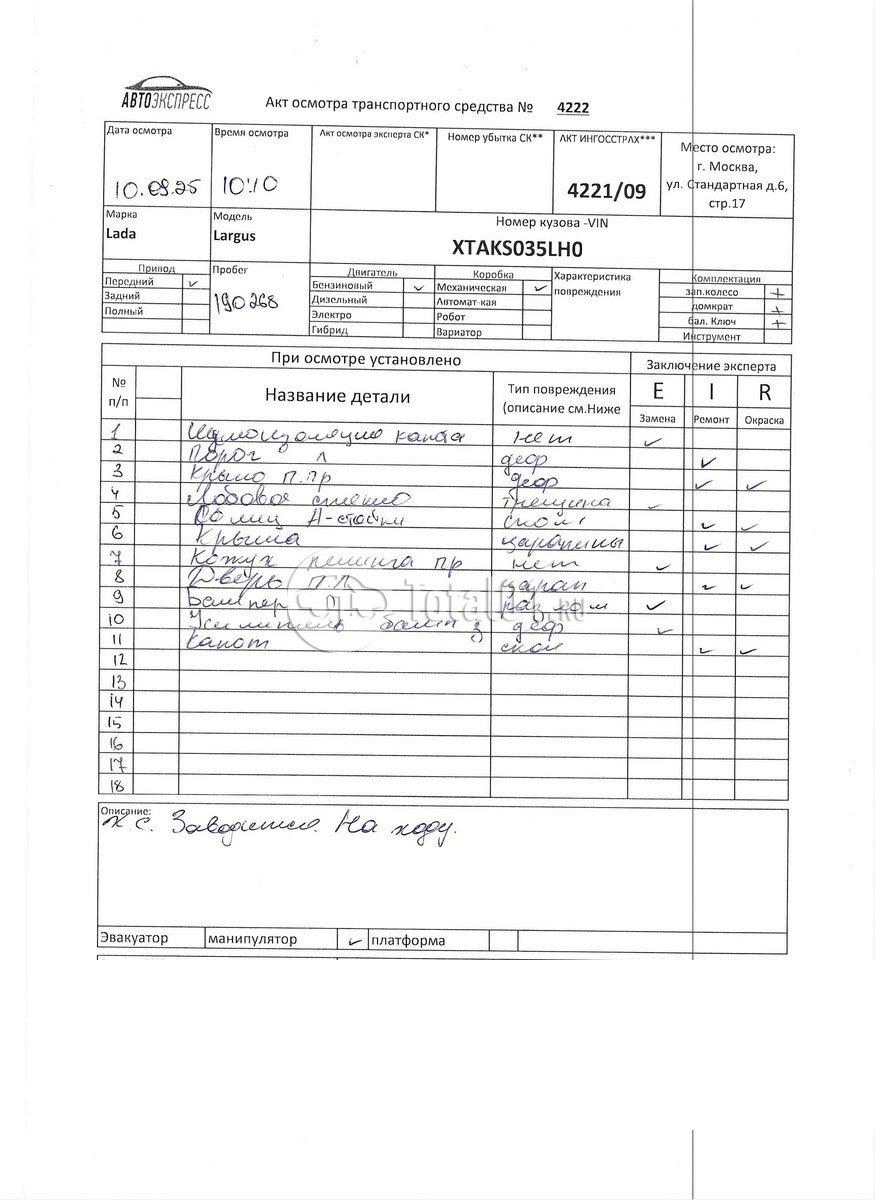 АВТОЭКСПРЕСС
Акт осмотра транспортного средства № 4222
Дата осмотра
10.09.25
Время осмотра
10:10
Акт осмотра эксперта СК*
Номер убытка СК**
АКТ ИНГОССТРАХ***
4221/09
Место осмотра:
г. Москва,
ул. Стандартная д.6,
стр.17
Марка
Lada
Модель
Largus
Номер кузова -VIN
XTAKS035LH0
Привод
Передний ✓
Задний
Полный
Пробег
190268
Двигатель
Бензиновый ✓
Дизельный
Электро
Гибрид
Коробка
Механическая ✓
Автомат-кая
Робот
Вариатор
Характеристика
повреждения
Комплектация
зап.колесо +
домкрат +
бал. Ключ +
Инструмент
При осмотре установлено
Заключение эксперта
№
п/п
Название детали
Тип повреждения
(описание см.Ниже
E I R
Замена Ремонт Окраска
1 Шумоизоляция капота нет ✓
2 Порог л деф ✓
3 Крыло п.пр деф ✓ ✓
4 Лобовое стекло трещина ✓
5 А-стойки скол ✓ ✓
6 Крыша царапины ✓ ✓
7 Кожух рейлинга пр нет ✓
8 Дверь п.л царап ✓ ✓
9 Бампер П ✓
10 Усилитель бамп з деф ✓
11 Капот скол ✓ ✓
12
13
14
15
16
17
18
Описание:
Заводится. На ходу.
Эвакуатор манипулятор ✓ платформа
Total
.RU